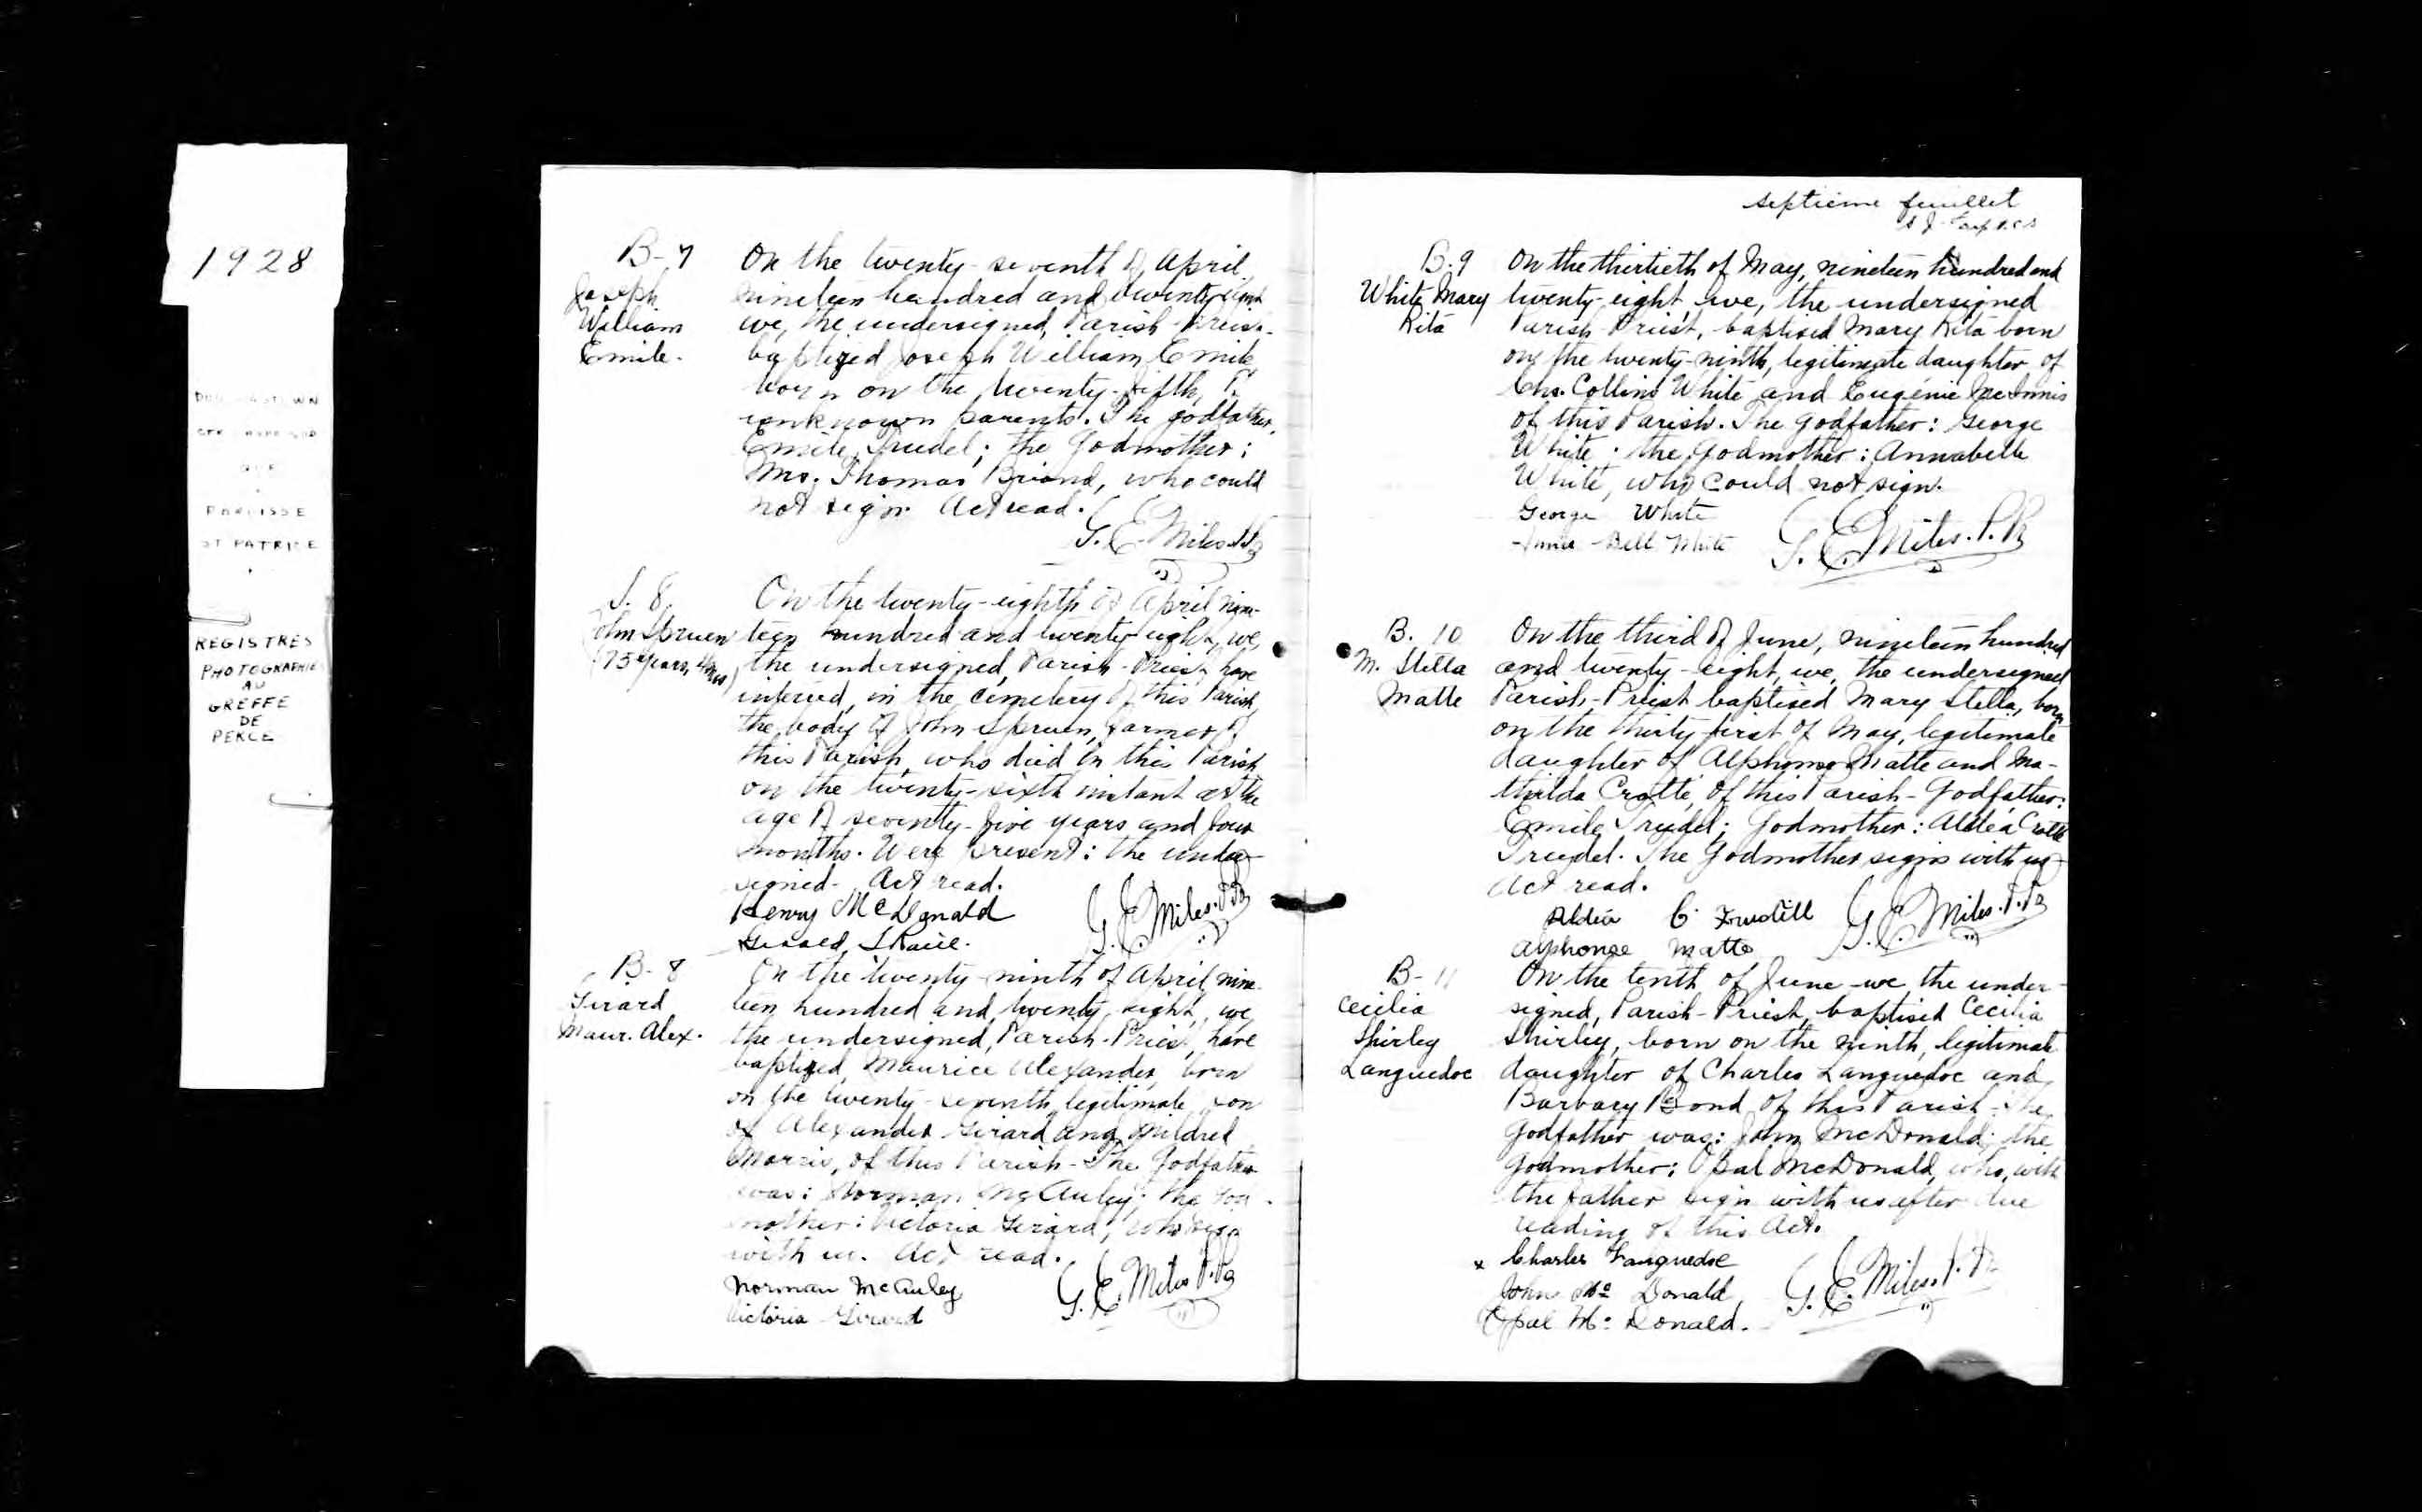 1928
PAROISSE
ST PATRICE
REGISTRES
PHOTOGRAPHIE
AU
GREFFE
DE
PERCE
B-7
Joseph
William
Emile.
On the twenty-seventh of April
nineteen hundred and twenty-eight
we, the undersigned, Parish-Priest
baptized Joseph William Emile,
born on the twenty-fifth, of
unknown parents. The godfather,
Emile Trudel; the Godmother:
Mrs. Thomas Briand, who could
not sign. Act read.
G. E. Miles. P.P.
S. 8
John Spruen
(75 years, 4 mos)
On the twenty-eighth of April nine-
teen hundred and twenty-eight, we,
the undersigned, Parish-Priest, have
interred, in the cemetery of this Parish,
the body of John Spruen, farmer of
this Parish, who died in this Parish
on the twenty-sixth instant at the
age of seventy-five years and four
months. Were present: the under-
signed. Act read.
Henry McDonald
G. E. Miles. P.P.
B-8
Girard
Maur. Alex.
On the twenty-ninth of April nine-
teen hundred and twenty-eight, we,
the undersigned, Parish-Priest, have
baptized, Maurice Alexander, born
on the twenty-seventh, legitimate son
of Alexander Girard and Mildred
Morris, of this Parish - The Godfather
was: Norman McAuley; the God-
mother: Victoria Girard, who sign
with us. Act read.
Norman McAuley
Victoria Girard
G. E. Miles P.P.
septième feuillet
B.9
White Mary
Rita
On the thirtieth of May, nineteen hundred and
twenty-eight, we, the undersigned
Parish Priest, baptised Mary Rita born
on the twenty-ninth, legitimate daughter of
Chs. Collins White and Eugénie McInnis
of this Parish. The godfather: George
White; the Godmother: Annabelle
White, who could not sign.
George White
Anna Bell White
G. E. Miles. P.P.
B. 10
M. Stella
Matte
On the third of June, nineteen hundred
and twenty-eight, we, the undersigned
Parish-Priest baptised Mary Stella, born
on the thirty-first of May, legitimate
daughter of Alphonse Matte and Ma-
thilda Crotte, of this Parish - Godfather:
Emile Trudel; Godmother: Aldéa Crotte
Trudel. The Godmother signs with us
Act read.
Aldéa C. Trudell
Alphonse Matte
G. E. Miles. P.P.
B-11
Cecilia
Shirley
Languedoc
On the tenth of June we, the under-
signed, Parish-Priest, baptised Cecilia
Shirley, born on the ninth, legitimate
daughter of Charles Languedoc and
Barbary Bond of this Parish - The
Godfather was: John McDonald; the
Godmother: Opal McDonald, who, with
the father sign with us after due
reading of this Act.
x Charles Languedoc
John Mc Donald
Opal Mc Donald.
G. E. Miles. P.P.